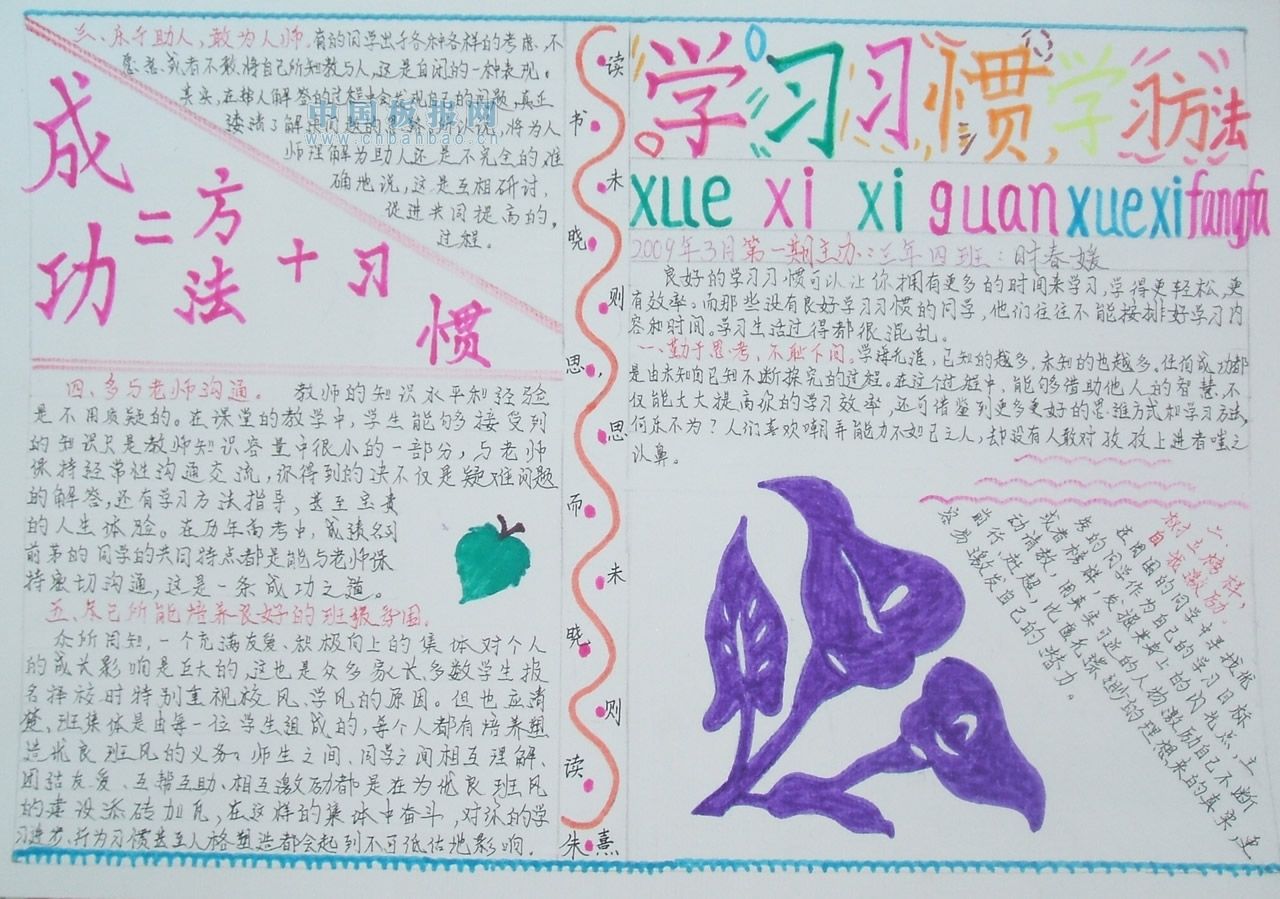 学习习惯学习方法
xue xi xi guan xuexifangfa
2009年3月第一期主办:三年四班:时春媛
良好的学习习惯可以让你拥有更多的时间来学习,学得更轻松,更
有效率。而那些没有良好学习习惯的同学,他们往往不能按排好学习内
容和时间。学习生活过得都很混乱。
一、勤于思考,不耻下问。学海无涯,已知的越多,未知的也越多。任何成功都
是由未知向已知不断探究的过程。在这个过程中,能够借助他人的智慧,不
仅能大大提高你的学习效率,还可借鉴到更多更好的思维方式和学习方法,
何乐不为?人们喜欢嘲弄能力不如己之人,却没有人敢对孜孜上进者嗤之
以鼻。
二、树立榜样,
自我激励。
在周围的同学中寻找优
秀的同学作为自己的学习目标
或者榜样,发掘其身上的闪光点,主
动请教,用真实可近的人物激励自己不断
前行、赶超,比虚无缥缈的理想来的真实,更
容易激发自己的潜力。
读书未晓则思,思而未晓则读
朱熹
三、乐于助人,敢为人师。有的同学出于各种各样的考虑,不
愿意、或者不敢将自己所知教与人,这是自闭的一种表现。
其实,在替人解答的过程中会发现自己的问题,真正
理解为助人还是不完全的准
确地说,这是互相研讨,
促进共同提高的,
过程。
中国板报网
www.cnbanbao.cn
成功=方法+习惯
四、多与老师沟通。 教师的知识水平和经验
是不用质疑的。在课堂的教学中,学生能够接受到
的知识只是教师知识容量中很小的一部分,与老师
保持经常性沟通交流,你得到的决不仅是疑难问题
的解答,还有学习方法指导,甚至宝贵
的人生体验。在历年高考中,成绩名列
前茅的同学的共同特点都是能与老师保
持密切沟通,这是一条成功之道。
五、尽己所能培养良好的班级氛围。
众所周知,一个充满友爱、积极向上的集体对个人
的成长影响是巨大的,这也是众多家长、多数学生报
名择校时特别重视校风、学风的原因。但也应清
楚,班集体是由每一位学生组成的,每个人都有培养塑
造优良班风的义务。师生之间、同学之间相互理解、
团结友爱、互帮互助、相互激励都是在为优良班风
的建设添砖加瓦,在这样的集体中奋斗,对你的学
习进步、行为习惯甚至人格塑造都会起到不可低估地影响。